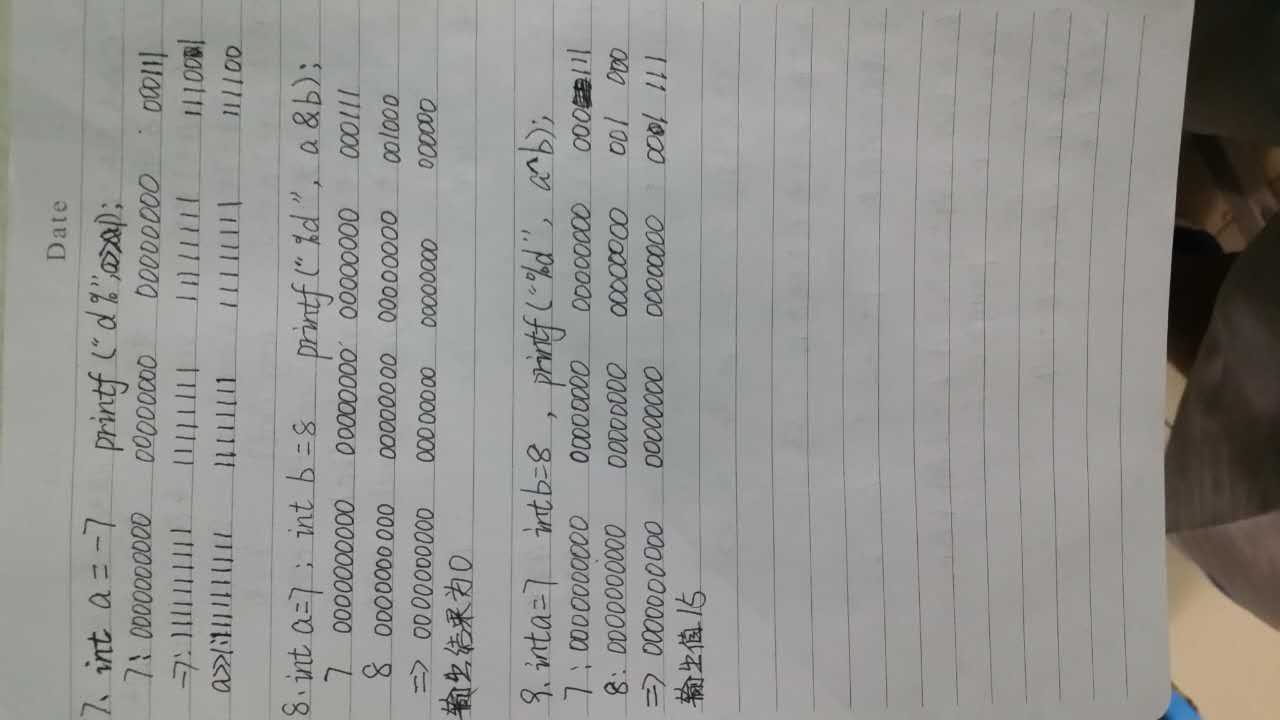 Date
7、int a = -7 printf ("d%",a>>1);
7: 0000000000 00000000 00000000 00011|
-7: 1111111111 11111111 11111111 111001
a>>1: 1111111111 11111111 11111111 111100
8. int a=7; int b=8 printf("%d", a&b);
7 0000000000 00000000 00000000 000111
8 0000000000 00000000 00000000 001000
=> 0000000000 00000000 00000000 000000
输出结果为0
9. int a=7 int b=8, printf("%d", a^b);
7: 0000000000 00000000 00000000 000111
8: 0000000000 00000000 00000000 001 000
=> 0000000000 00000000 00000000 001 111
输出值15